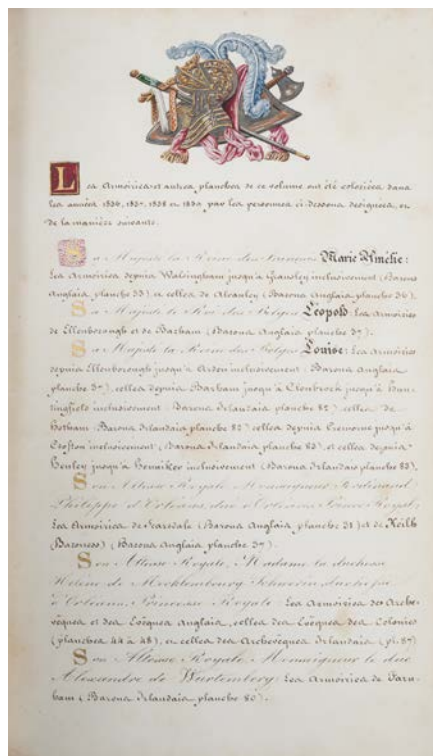 Les Armoiries et autres planches de ce volume ont été coloriées dans
les années 1836, 1837, 1838 et 1839 par les personnes ci-dessous désignées, et
de la manière suivante:
Sa Majesté la Reine des Français Marie Amélie:
Les Armoiries depuis Walsingham jusqu'à inclusivement (Barons
Anglais planche 35) et celles de Alvanley (Barons Anglais planche 36).
Sa Majesté le Roi des Belges Léopold: Les Armoiries
de Ellenborough et de Barham (Barons Anglais planche 37).
Sa Majesté la Reine des Belges Louise: Les Armoiries
depuis Ellenborough jusqu'à Arden inclusivement (Barons Anglais
planche 37), celles depuis Barham jusqu'à Clonbrock jusqu'à
inclusivement (Barons Irlandais planche 82) celles de
Hotham (Barons Irlandais planche 82) celles depuis Cremorne jusqu'à
Crofton inclusivement (Barons Irlandais planche 83), et celles depuis
Henley jusqu'à Henniker inclusivement (Barons Irlandais planche 83).
Son Altesse Royale Monseigneur Ferdinand
Philippe d'Orléans, duc d'Orléans Prince Royal:
Les Armoiries de Scarsdale (Barons Anglais planche 31) et de Keith
(Baroness) (Barons Anglais planche 37)
Son Altesse Royale, Madame la duchesse
Hélène de Mecklembourg Schwerin duchesse
d'Orléans, Princesse Royale: Les Armoiries des Arche-
vêques et des Evêques Anglais, celles des Evêques des Colonies
(planches 44 à 48), et celles des Archevêques Irlandais (pl. 87)
Son Altesse Royale, Monseigneur le duc
Alexandre de Wurtemberg: Les Armoiries de Farn-
ham (Barons Irlandais planche 80).